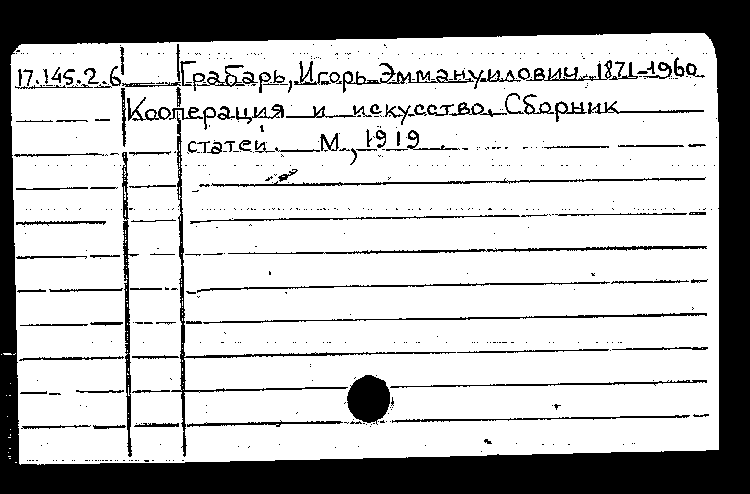 17.145.2.6 Грабарь, Игорь Эммануилович 1871-1960
Кооперация и искусство. Сборник
статей. М, 1919.